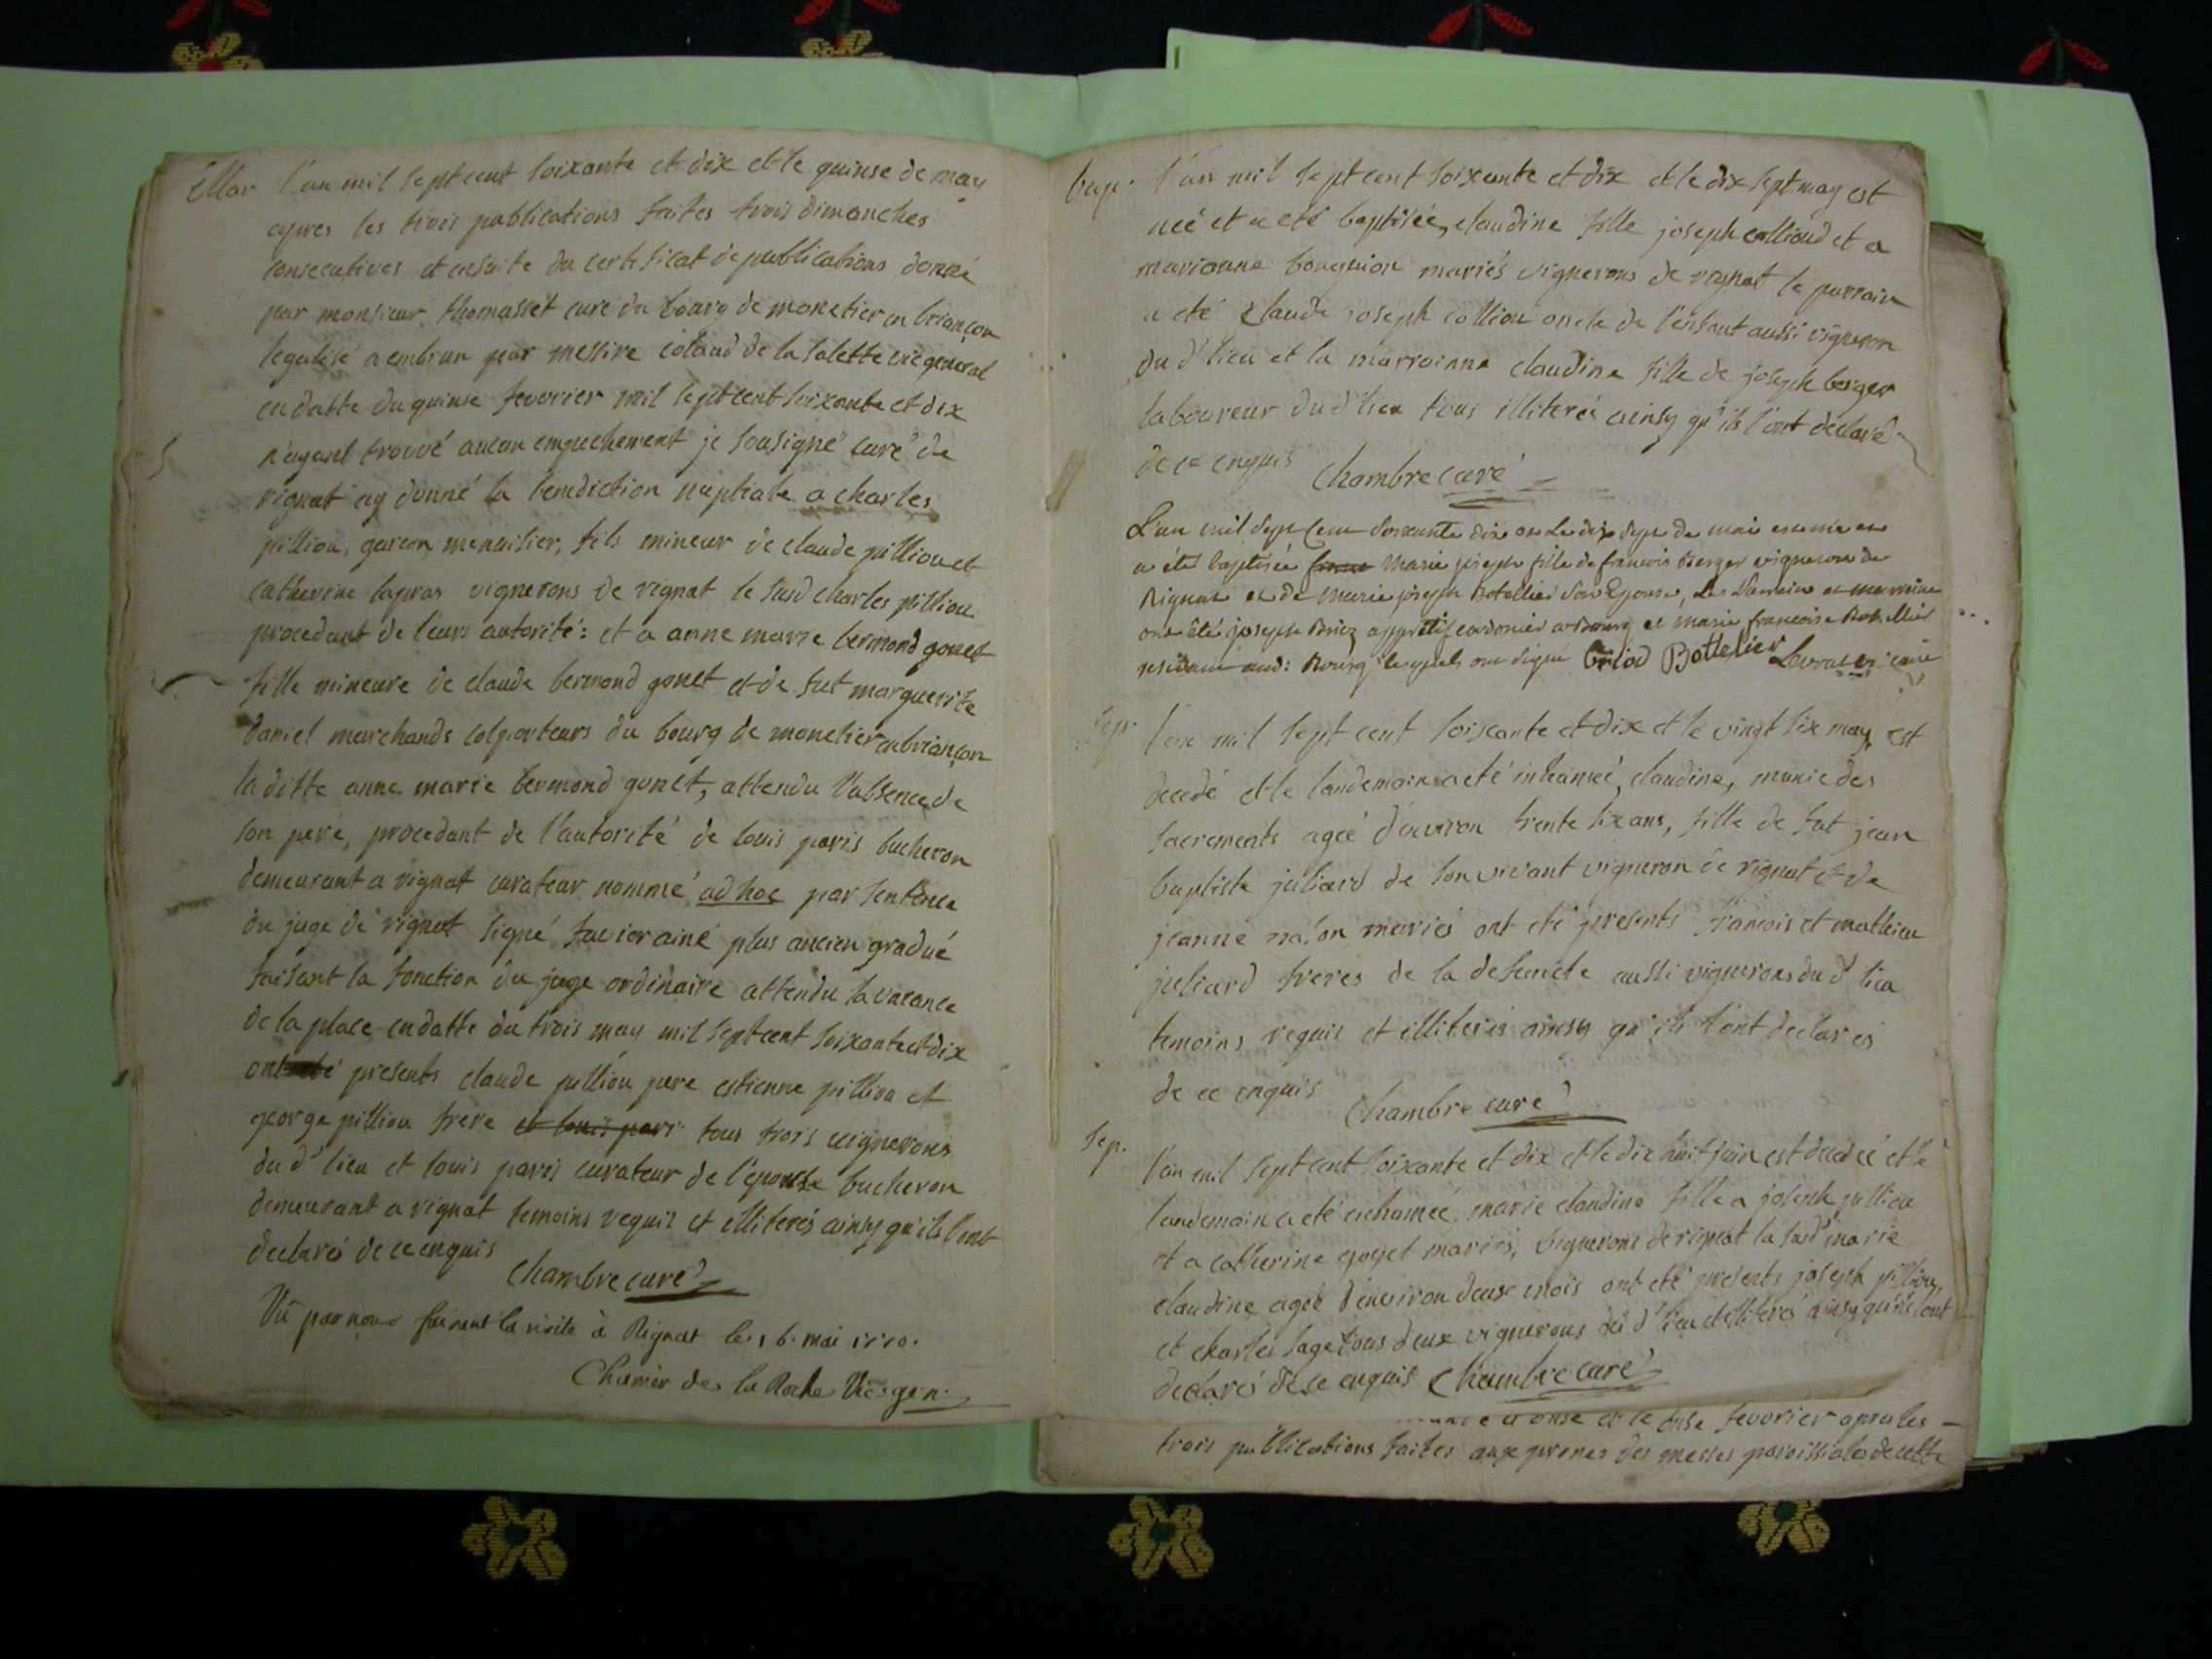 Mar l'an mil sept cent soixante et dix et le quinse de may
apres les trois publications faites trois dimanches
consecutives et ensuite du certificat de publications donné
par monsieur thomasset curé du bourg de monetier en briançon
legalisé a embrun par messire colaud de la salette vic general
en datte du quinse fevorier mil sept cent soixante et dix
n'ayant trouvé aucun empechement je sousigné curé de
rignat ay donné la benediction nuptiale a charles
pilliou, garcon menuisier, fils mineur de claude pilliou et
catherine lapras vignerons de rignat le susd charles pilliou
procedant de leurs autorité: et a anne marie bermond gonet
fille mineure de claude bermond gonet et de fut marguerite
daniel marchands colporteurs du bourg de monetier en briançon
la ditte anne marie bermond gonet, attendu l'absence de
son pere, procedant de l'autorité de louis paris bucheron
demeurant a rignat curateur nommé ad hoc par sentence
du juge de rignat signé plus ancien gradué
faisant la fonction du juge ordinaire attendu la vacance
de la place en datte du trois may mil sept cent soixante et dix
ont eté presents claude pilliou pere estienne pilliou et
george pilliou frere et louis pari tous trois vignerons
du d' lieu et louis paris curateur de l'epouse bucheron
demeurant a rignat temoins requis et illiterés ainsy qu'ils l'ont
declarés de ce enquis
Chambre curé
Vû par nous faisant la visite à Rignat le 16. mai 1770.
de la Roche Vic. gén.
bap. l'an mil sept cent soixante et dix et le dix sept may est
neé et a eté baptisée, claudine fille joseph collioud et a
marianne bouquion mariés vignerons de rignat le parrain
a eté claude joseph colliou oncle de l'enfant aussi vigneron
du d' lieu et la marrainne claudine fille de joseph berger
laboureur du d' lieu tous illiterés ainsy qu'ils l'ont declaré
de ce enquis
Chambre curé
L'an mil sept cent soixante dix et Le dix sept de mai est née et
a été baptisée Marie joseph fille de francois Berger vigneron de
Rignat et de Marie joseph Botellier son Epouse, Les Parrain et marraine
ont été joseph apprétif cordonier a Bourg et Marie francoise Botellier
residant aud: Bourg lesquels ont signé briod Bottelier
sep. l'an mil sept cent soixante et dix et le vingt six may est
decedé et le landemain a eté inhumeé, claudine, munie des
sacrements ageé d'environ trente six ans, fille de fut jean
baptiste juliard de son vivant vigneron de rignat et de
jeanne mariés ont eté presents francois et mathieu
juliard freres de la defuncte aussi vignerons du d' lieu
temoins requis et illiterés ainsy qu'ils l'ont declarés
de ce enquis
Chambre curé
sep. l'an mil sept cent soixante et dix et le dix huit juin est decedeé et le
landemain a eté inhumeé marie claudine fille a joseph pilliou
et a catherine goyet mariés, vignerons de rignat la susd' marie
claudine ageé d'environ deux mois ont eté presents joseph pilliou,
et charles sage tous deux vignerons du d' lieu et illiterés ainsy qu'ils l'ont
declarés de ce enquis Chambre curé
onse et le onse fevorier apres les
trois publications faites aux prones des messes paroissiales de cette